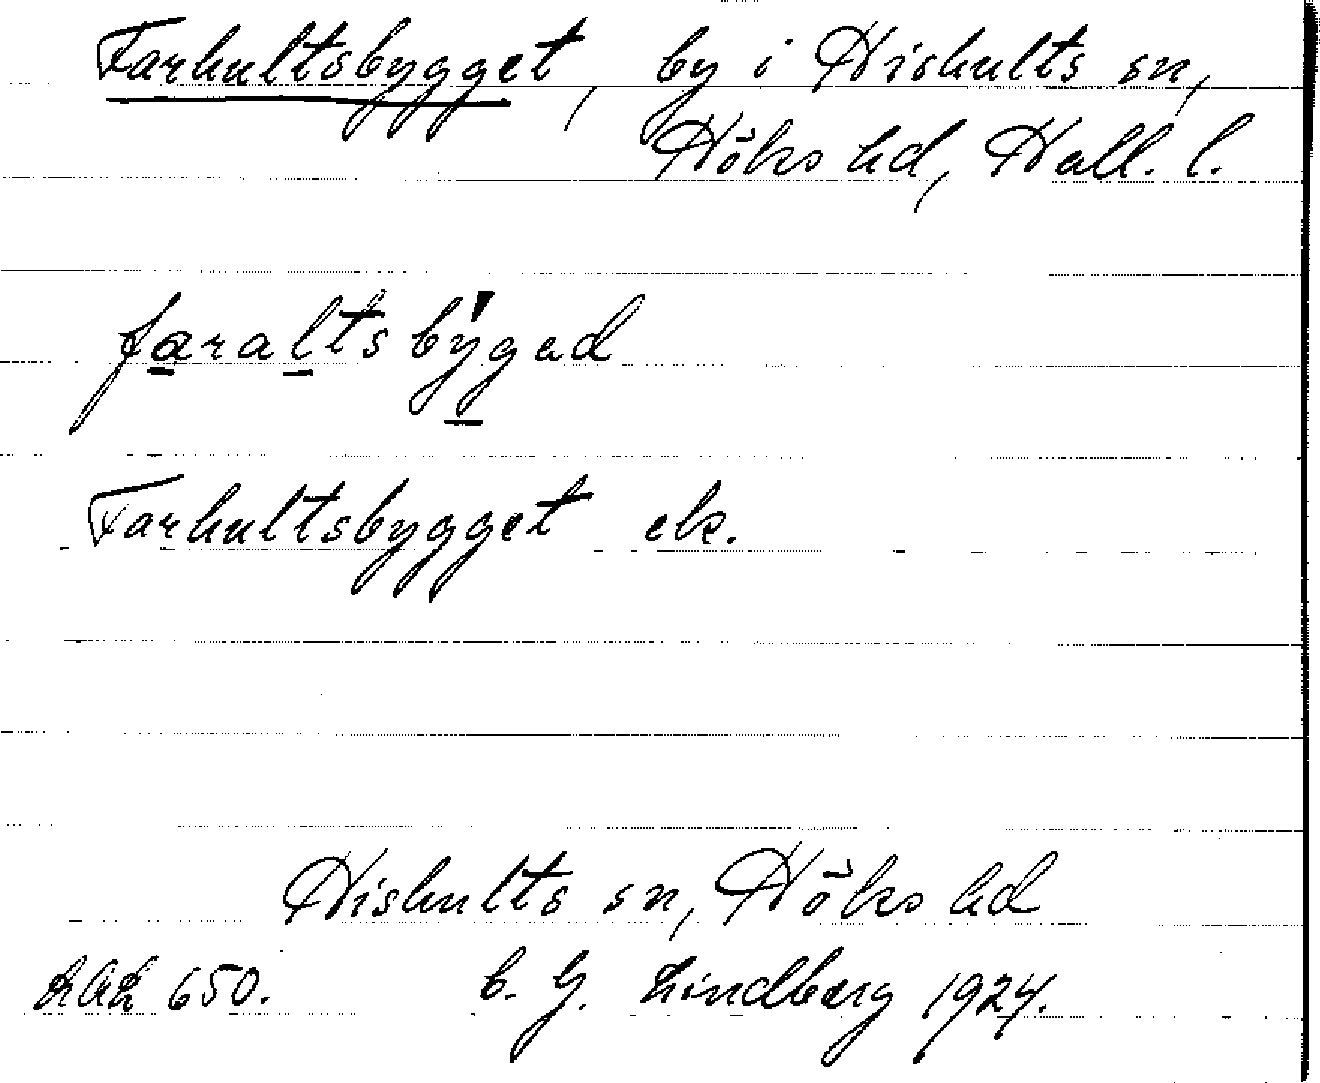 Farhultsbygget, by i Hishults sn,
Höks hd, Hall. l.
faraltsbýgad
Farhultsbygget ek.
Hishults sn, Höks hd
650. C. G. Lindberg 1924.